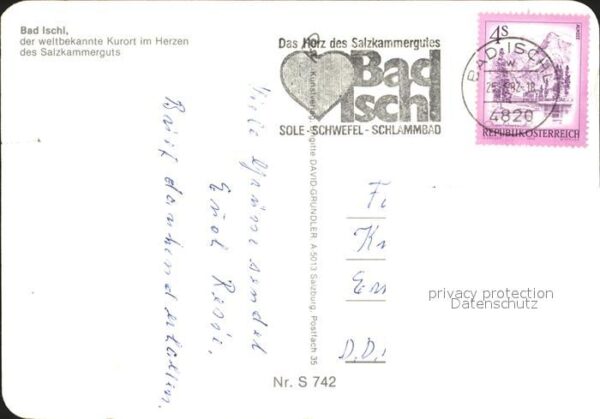 Bad Ischl,
der weltbekannte Kurort im Herzen
des Salzkammerguts
Das Herz des Salzkammergutes
Bad
Ischl
SOLE-SCHWEFEL-SCHLAMMBAD
4S
BAD ISCHL
4820
REPUBLIK ÖSTERREICH
Kunstverlag
DAVID-GRÜNDLER A 5013 Salzburg, Postfach 35
Viele Grüsse sendet
Brief dankend erhalten.
D.D.
privacy protection
Datenschutz
Nr. S 742